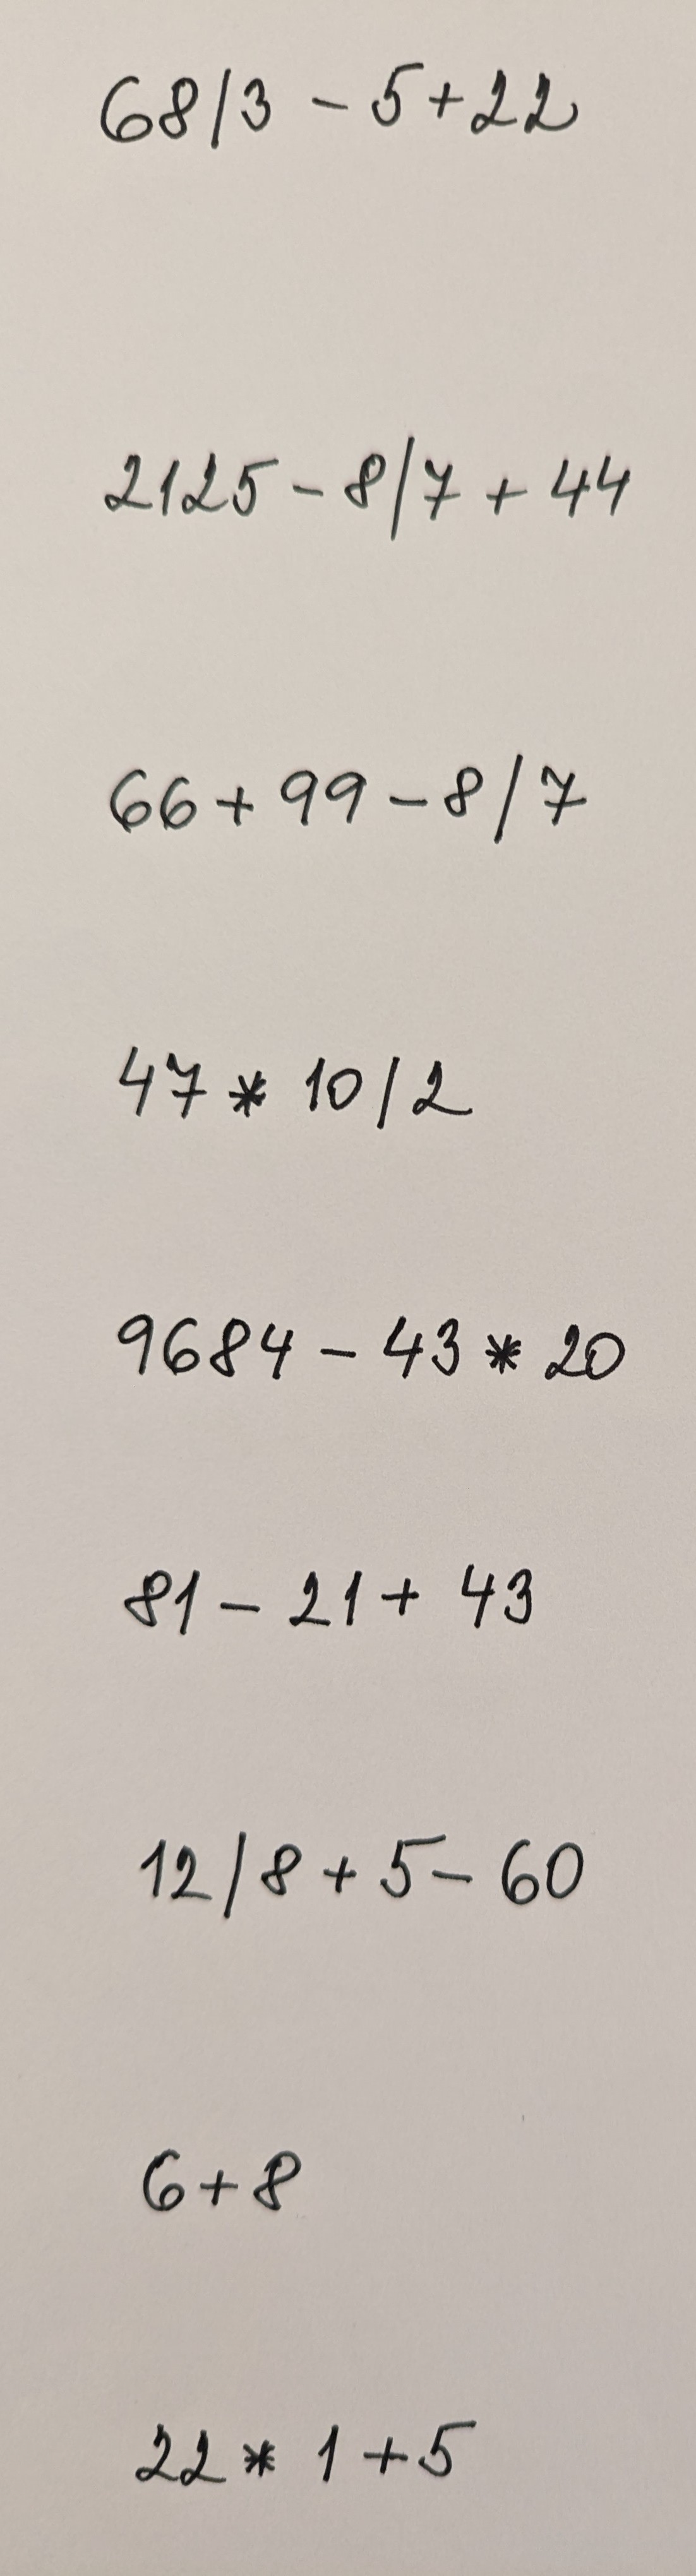 68/3 - 5+22
2125 - 8/7 + 44
66 + 99 - 8/7
47 * 10/2
9684 - 43 * 20
81 - 21 + 43
12/8 + 5 - 60
6+8
22 * 1 + 5